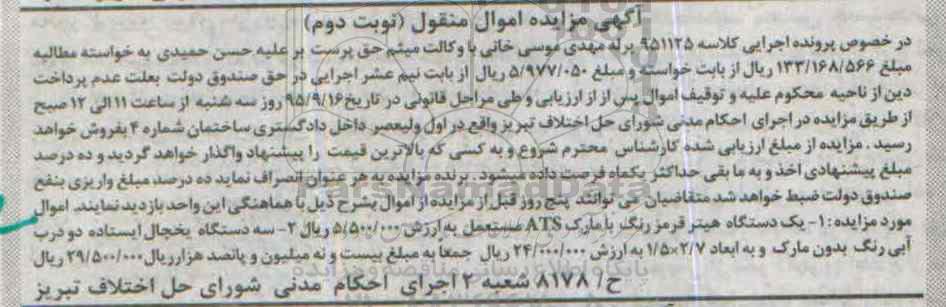 آگهی مزایده اموال منقول (نوبت دوم)
در خصوص پرونده اجرایی کلاسه ۹۵۱۱۲۵ پرله مهدی موسی خانی با وکالت میثم حق پرست بر علیه حسن حمیدی به خواسته مطالبه
مبلغ ۱۳۳/۱۶۸/۵۶۶ ریال از بابت خواسته و مبلغ ۵/۹۷۷/۰۵۰ ریال از بابت نیم عشر اجرایی در حق صندوق دولت بعلت عدم پرداخت
دین از ناحیه محکوم علیه و توقیف اموال پس از از ارزیابی و طی مراحل قانونی در تاریخ ۹۵/۹/۱۶ روز سه شنبه از ساعت ۱۱ الی ۱۲ صبح
از طریق مزایده در اجرای احکام مدنی شورای حل اختلاف تبریز واقع در اول ولیعصر داخل دادگستری ساختمان شماره ۴ بفروش خواهد
رسید . مزایده از مبلغ ارزیابی شده کارشناس محترم شروع و به کسی که بالاترین قیمت را پیشنهاد واگذار خواهد گردید و ده درصد
مبلغ پیشنهادی اخذ و به ما بقی حداکثر یکماه فرصت داده میشود . برنده مزایده به هر عنوان انصراف نماید ده درصد مبلغ واریزی بنفع
صندوق دولت ضبط خواهد شد متقاضیان می توانند پنج روز قبل از مزایده از اموال بشرح ذیل با هماهنگی این واحد بازدید نمایند. اموال
مورد مزایده : ۱- یک دستگاه هیتر قرمز رنگ با مارک ATS مستعمل به ارزش ۵/۵۰۰/۰۰۰ ریال ۲- سه دستگاه یخچال ایستاده دو درب
آبی رنگ بدون مارک و به ابعاد ۱/۵×۲/۷ به ارزش ۲۴/۰۰۰/۰۰۰ ریال جمعا به مبلغ بیست و نه میلیون و پانصد هزار ریال ۲۹/۵۰۰/۰۰۰ ریال
ح/ ۸۱۷۸ شعبه ۲ اجرای احکام مدنی شورای حل اختلاف تبریز
ParsNamadData